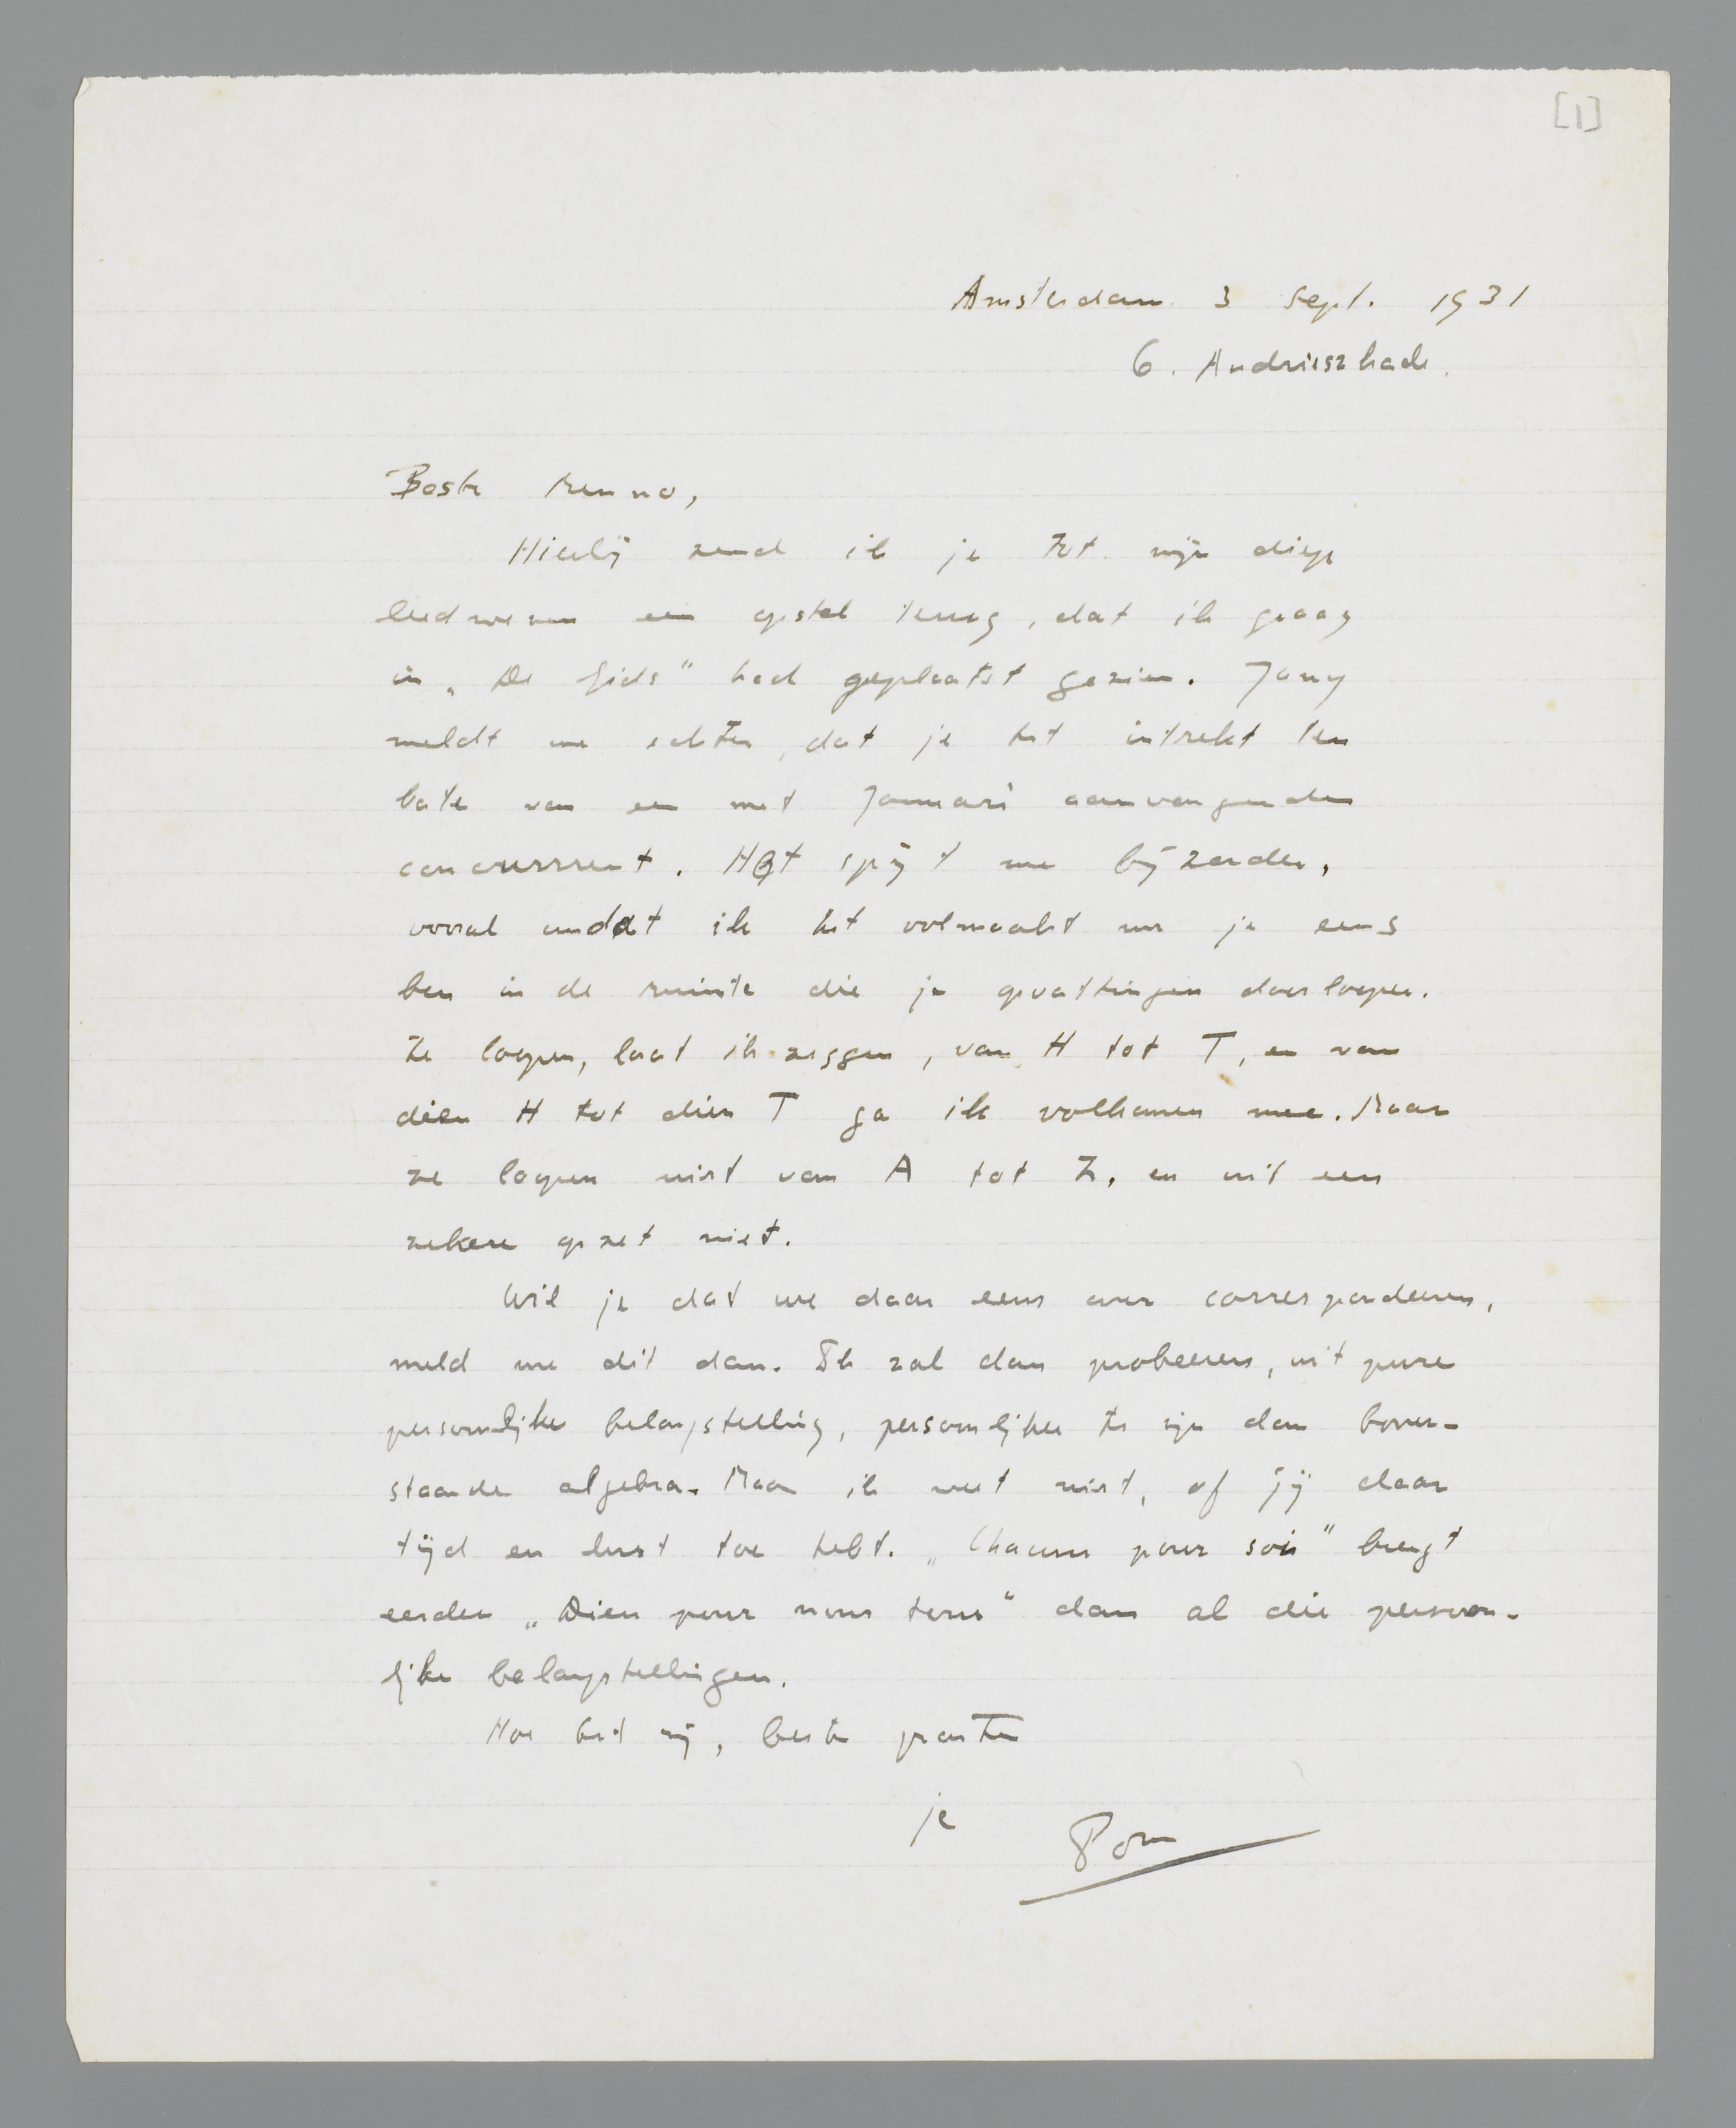 [1]
Amsterdam 3 Sept. 1931
6. Andrieszkade.
Beste Menno,
Hierbij zend ik je tot mijn diep
leedwezen een opstel terug, dat ik graag
in „De Gids" had geplaatst gezien. Jany
meldt me echter, dat je het intrekt ten
bate van een met Januari aanvangenden
concurrrent. Het spijt me bijzonder,
vooral omdat ik het volmaakt met je eens
ben in de ruimte die je opvattingen doorloopen.
Ze loopen, laat ik zeggen, van H tot T, en van
dien H tot dien T ga ik volkomen mee. Maar
ze loopen niet van A tot Z, en uit een
zekere opzet niet.
Wil je dat we daar eens over correspondeeren,
meld me dit dan. Ik zal dan probeeren, uit pure
persoonlijke belangstelling, persoonlijker te zijn dan boven-
staande algebra. Maar ik weet niet, of jij daar
tijd en lust toe hebt. „Chacun pour soi" brengt
eerder „Dieu pour nous tous" dan al die persoon-
lijke belangstellingen.
Hoe het zij, beste groeten
je Pom